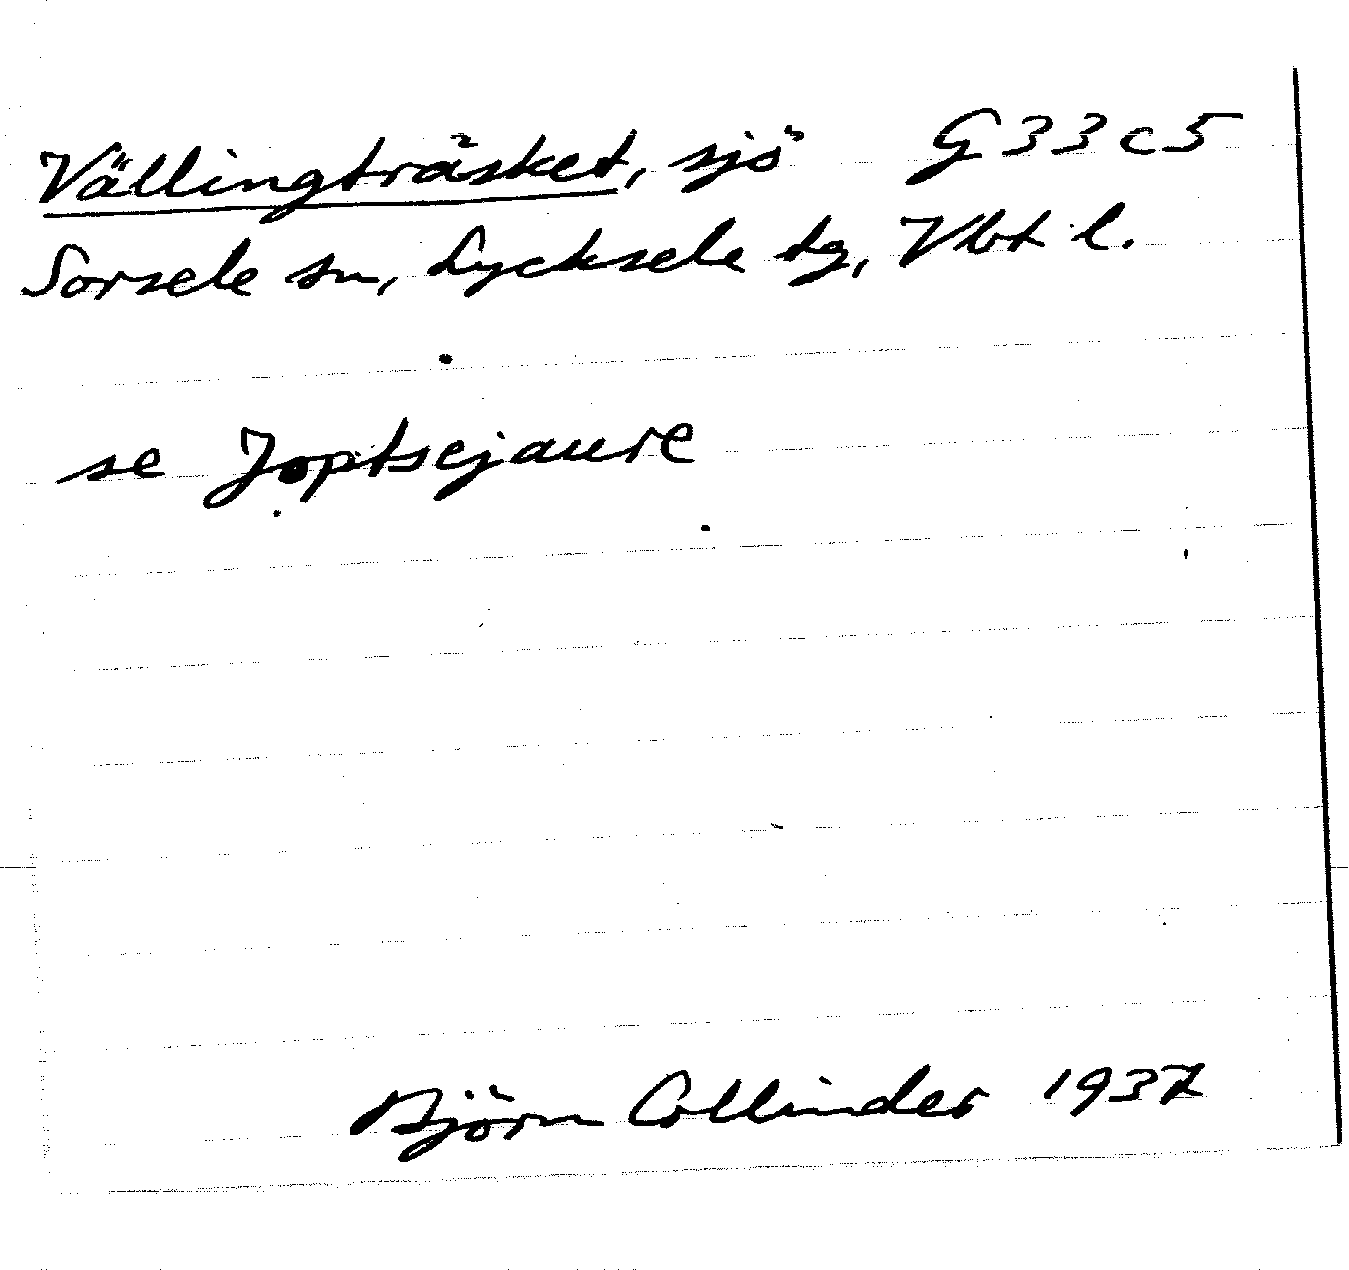 Vällingträsket, sjö G 33 c 5
Sorsele sn, Lycksele tg, Vbt l.
se Joptsejaure
Björn Collinder 1937